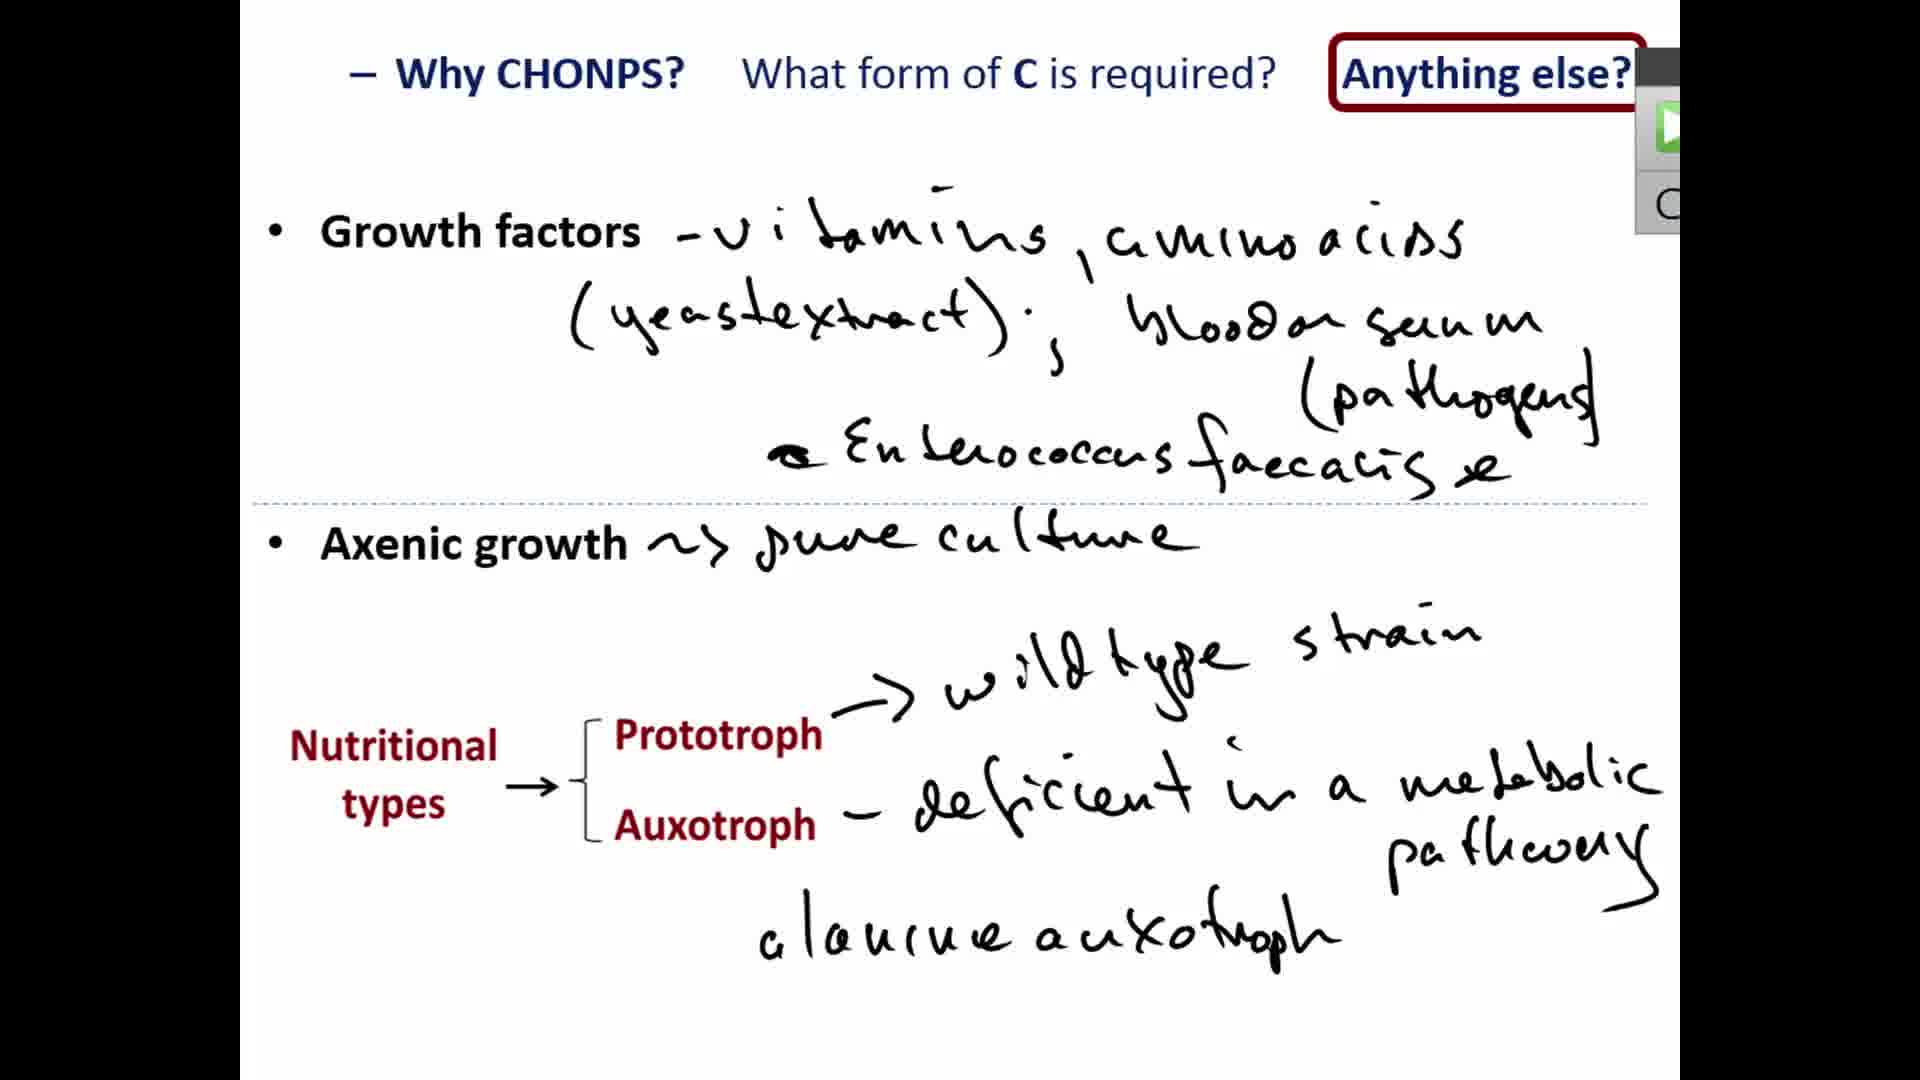 – Why CHONPS? What form of C is required? Anything else?
• Growth factors - vitamins, amino acids
(yeast extract); blood or serum
(pathogens)
Enterococcus faecalis
• Axenic growth ~> pure culture
Prototroph -> wild type strain
Nutritional types →
Auxotroph - deficient in a metabolic
pathway
alanine auxotroph